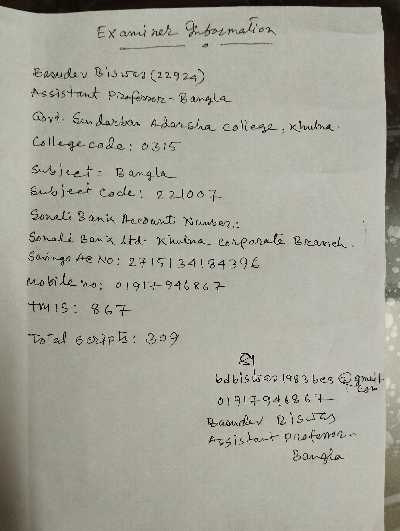 Examiner Information
Basudev Biswas (22924)
Assistant Professor - Bangla
Govt. Sundarban Adarsha College, Khulna.
College code: 0315
Subject: Bangla
Subject Code: 221007
Sonali Bank Account Number:
Sonali Bank Ltd. Khulna Corporate Branch.
Savings Ac No: 2715134184396
Mobile no: 01917-946867
TMIS: 867
Total scripts: 309
bdbiswas1983bcs@gmail.com
01917946867
Basudev Biswas
Assistant Professor
Bangla